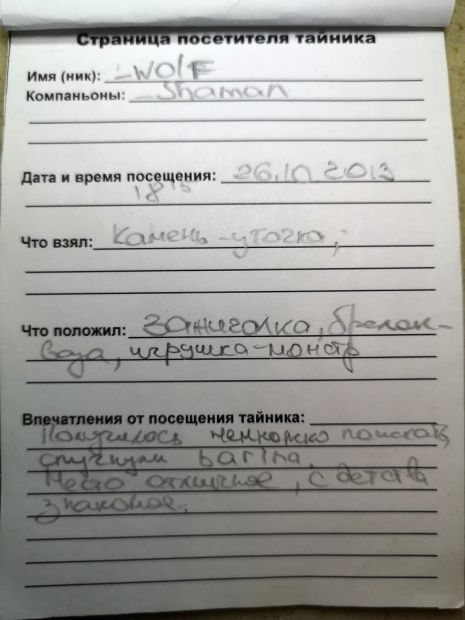 Страница посетителя тайника
Имя (ник): _Wolf
Компаньоны: _Shaman
Дата и время посещения: 26.10.2013
18 15
Что взял: Камень-уточка,
Что положил: Зажигалка, брелок-
вода, игрушка-монстр
Впечатления от посещения тайника:
Получилось немножко поискать,
спугнули
Место отличное, с детства
знакомое.